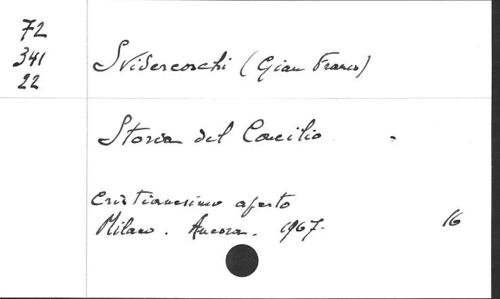 72
341
22
Svidercoschi (Gian Franco)
Storia del Concilio.
Cristianesimo aperto
Milano. Ancora. 1967.
16